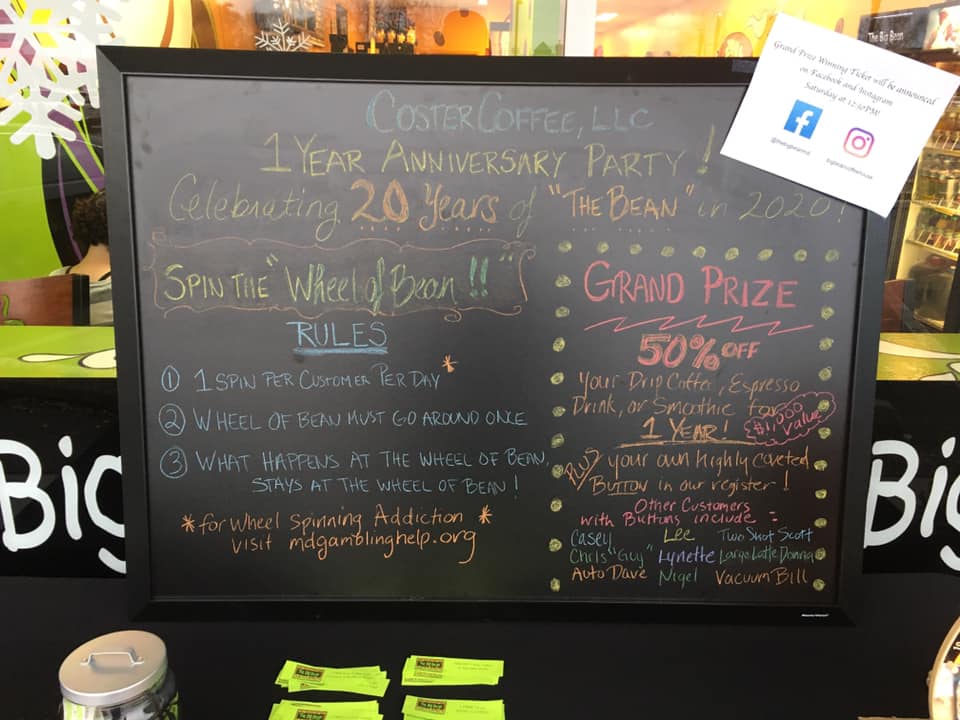 The Big Bean
Grand Prize Winning Ticket will be announced
on Facebook and Instagram
Saturday at 12:30PM!
COSTERCOFFEE, LLC
1 YEAR ANNIVERSARY PARTY !
Celebrating 20 Years of "THE BEAN" in 2020!
SPIN THE "Wheel of Bean !!"
RULES
① 1 SPIN PER CUSTOMER PER DAY*
② WHEEL OF BEAN MUST GO AROUND ONCE
③ WHAT HAPPENS AT THE WHEEL OF BEAN,
STAYS AT THE WHEEL OF BEAN!
*for Wheel Spinning Addiction *
visit mdgamblinghelp.org
GRAND PRIZE
50% OFF
Your Drip Coffee, Espresso
Drink, or Smoothie for
1 YEAR!
$1,000 value
PLUS your own highly coveted
BUTTON in our register!
Other Customers
with Buttons include:
Casey Lee Two Shot Scott
Chris "Guy" Lynette Large Latte Donna
Auto Dave Nigel Vacuum Bill
Big
Big